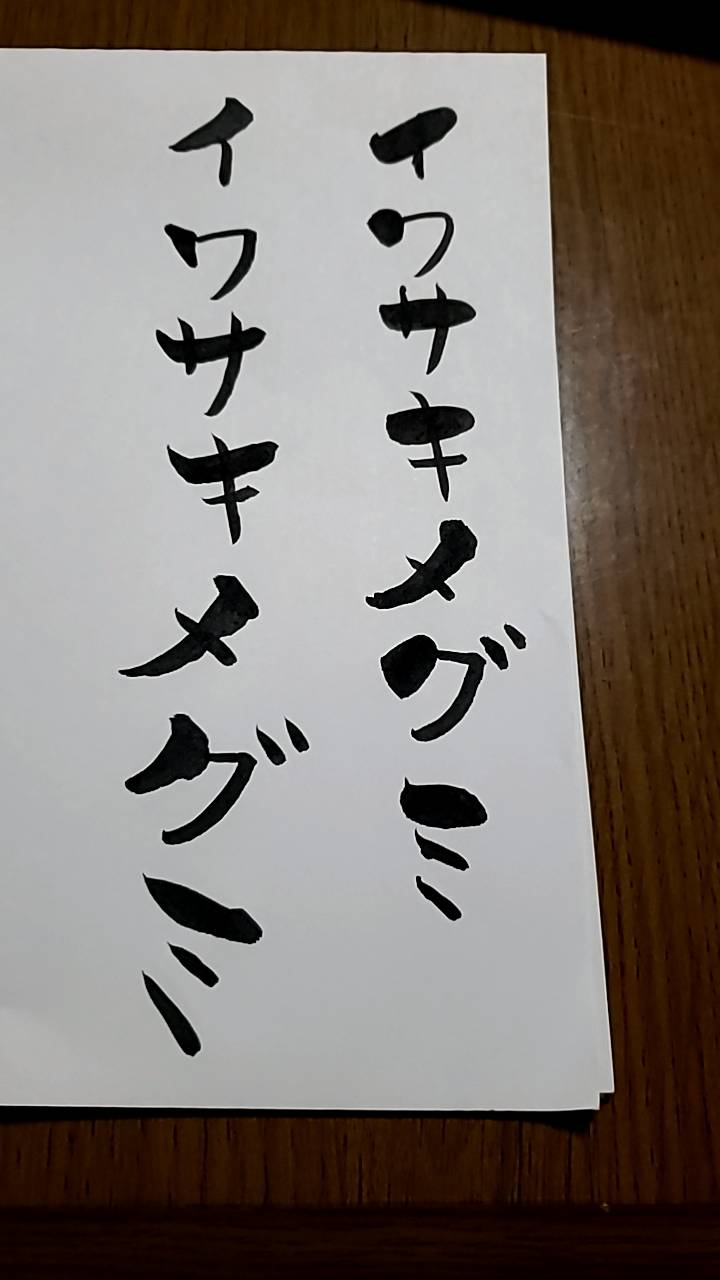 イワサキメグミ
イワサキメグミ